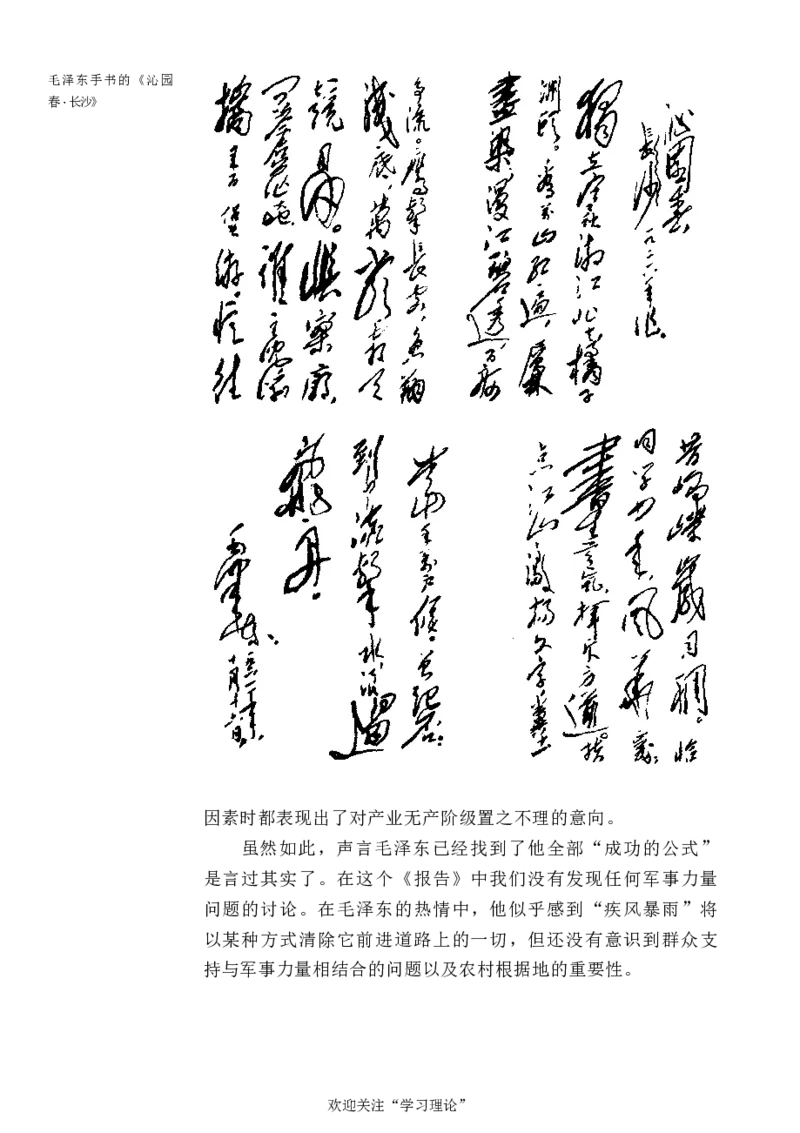 毛泽东手书的《沁园
春·长沙》
沁園春
長沙 一九二六年作。
獨立寒秋湘江北去橘子
洲頭。看万山红遍，层林
盡染，漫江碧透，百舸
争流。鹰擊長空，鱼翔
淺底，萬類霜天
競自由。悵寥廓，
问蒼茫大地，誰主沉浮
携来百侣曾游。忆往
昔峥嵘歲月稠。恰
同学少年，風華正茂；
書生意氣，揮斥方遒。指
点江山，激扬文字，糞土
當年万户侯。曾記否：
到中流擊水，浪遏
飛舟。
毛澤東
十月十六日
因素时都表现出了对产业无产阶级置之不理的意向。
虽然如此，声言毛泽东已经找到了他全部“成功的公式”
是言过其实了。在这个《报告》中我们没有发现任何军事力量
问题的讨论。在毛泽东的热情中，他似乎感到“疾风暴雨”将
以某种方式清除它前进道路上的一切，但还没有意识到群众支
持与军事力量相结合的问题以及农村根据地的重要性。
欢迎关注“学习理论”